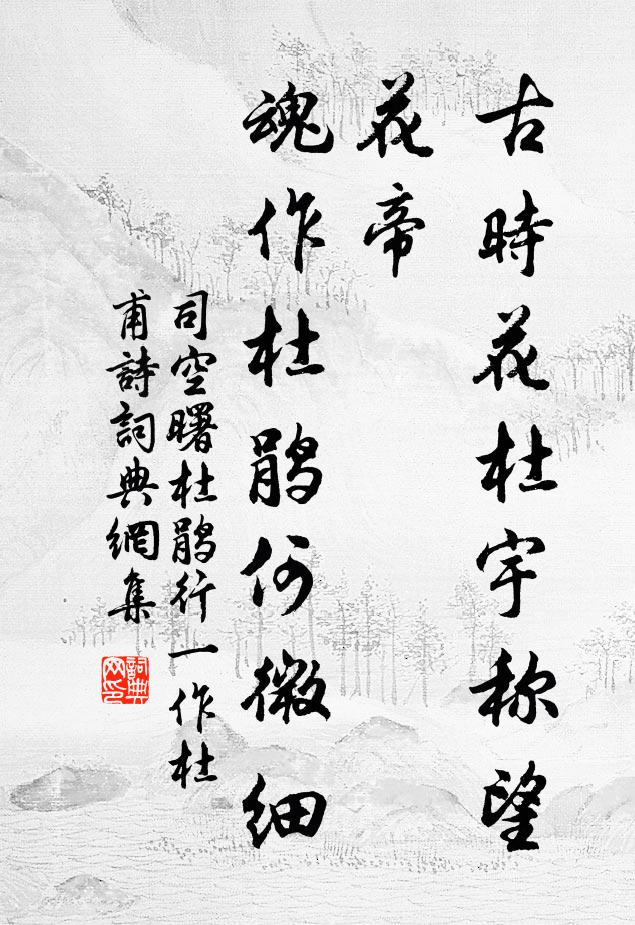 古時花杜宇称望
花帝
魂作杜鹃何微细
司空曙杜鹃行一作杜
甫詩詞典網集
詞典網印